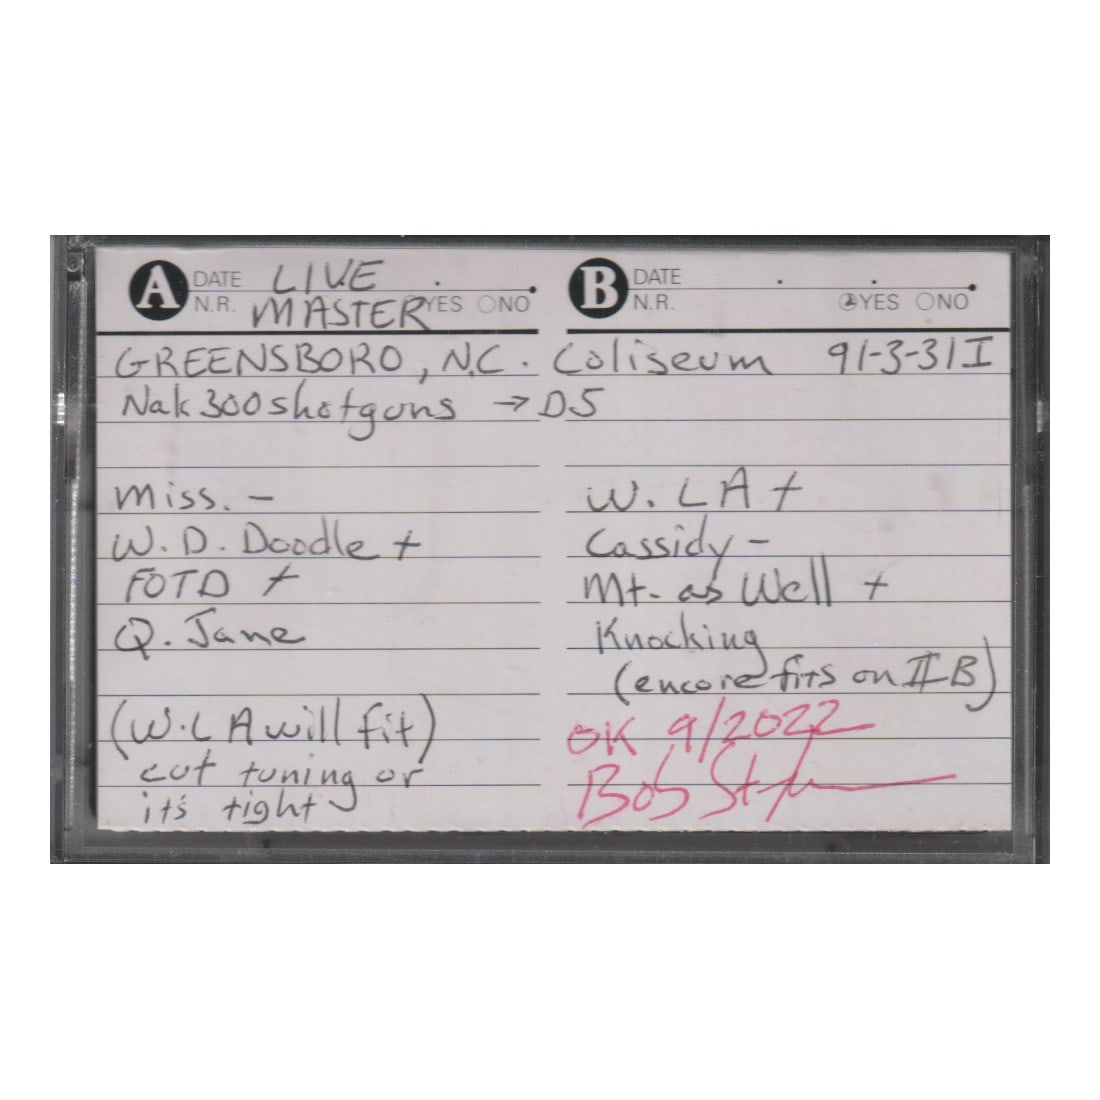 A DATE LIVE
N.R. MASTER YES NO
B DATE
N.R. YES NO
GREENSBORO, N.C. Coliseum 91-3-31 I
Nak 300 shotguns → D5
Miss. -
W. D. Doodle +
FOTD +
Q. Jane
(W. LA will fit)
cut tuning or
it's tight
W. LA +
Cassidy -
Mt. as Well +
Knocking
(encore fits on II B)
OK 9/2022
Bob